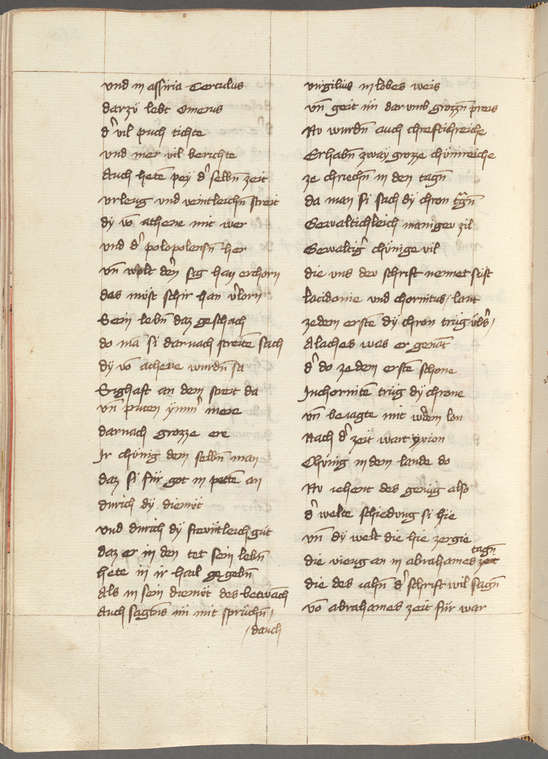 und in assiria Terculus
darzů lebt Omerus
d' vil puch tichte
und mer vil berichte
Auch hete pey d' selbn̄ zeit
urleug und veintleichn̄ streit
dÿ vō athene mit wer
und d' polopolensn̄ her
vn̄ wolt den̄ sig han erchorn
das můst schir han v'lorn
Sein lebn̄ daz geschach
do mā si darnach streitē sach
dÿ vō athene wurdn̄ sa
Sighaft an dem streit da
vn̄ immer mere
darnach grozze ere
Ir chůnig dem selbn̄ man
daz si für got in petten an
durich dÿ diemůt
und durich dÿ frewntleich gůt
daz er in den tot sein lebn̄
hete in ir hail gegebn̄
Als in sein diemůt des betwach
auch sagt uns mit sprüchn̄
/dauch
virgilius in lobes weis
vn̄ geit im dar umb grozzn̄ preis
Nv wurdn̄ auch chreftichreiche
Erhabn̄ zwaÿ groze chünireiche
ze chriechn̄ in den tagn̄
da man si sach dÿ chron tragn̄
Gewaltichleich maniger zil
Gewaltig' chünige vil
die uns dew schrift nennet seist
lacidonie und chorintus / lant
ze dem erste dÿ chron trůg
Alaches was er genāt
d' do ze dem erste schone
In chorintē trůg dÿ chrone
vn̄ beiagte mit w'dem lon
Nach d' zeit wart ÿxion
Chünig in dem lande do
Nv iehent des genůg also
d' welte schidung si hie
vn̄ dÿ welt die hie zergie
die vierg an in abrahames zeit tagn̄
die des iahn̄ d' schrift wil sagn̄
vō abrahames zeit für war